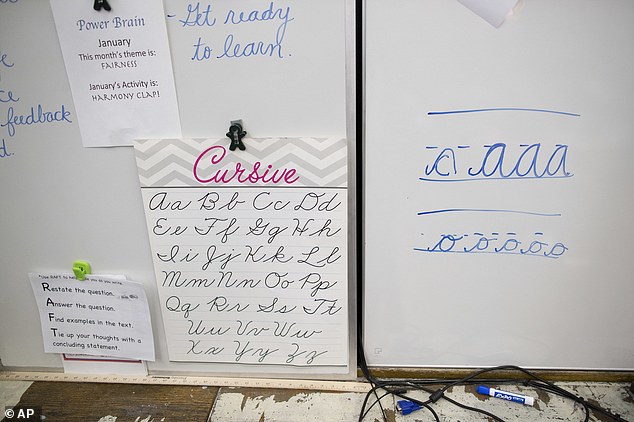 Power Brain
January
This month's theme is:
FAIRNESS
January's Activity is:
HARMONY CLAP!
- Get ready
to learn.
feedback
d.
Cursive
Aa Bb Cc Dd
Ee Ff Gg Hh
Ii Jj Kk Ll
Mm Nn Oo Pp
Qq Rr Ss Tt
Uu Vv Ww
Xx Yy Zz
Restate the question.
Answer the question.
Find examples in the text.
Tie up your thoughts with a
concluding statement.
a a a a
o o o o o
© AP